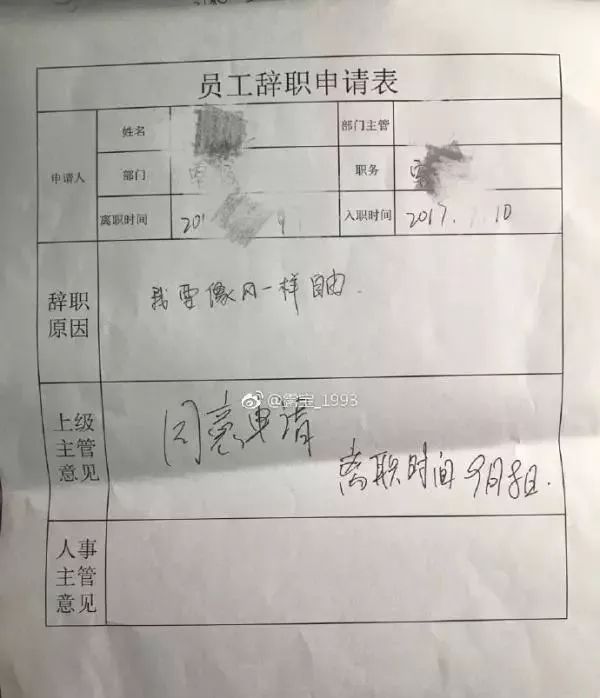 员工辞职申请表
姓名
部门主管
申请人
部门
职务
离职时间 201
入职时间 2017. 10
辞职原因
我要像风一样自由.
@霭宝_1993
上级主管意见
同意申请
离职时间9月8日.
人事主管意见